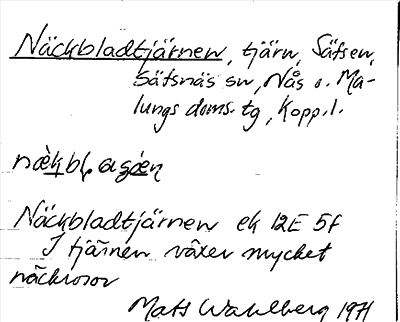 Näckbladtjärnen, tjärn, Säfsen,
Säfsnäs sn, Nås o. Ma-
lungs doms. tg, Kopp. l.
Näckbladtjärnen ek 12E 5f
I tjärnen växer mycket
näckrosor
Mats Wahlberg 1971